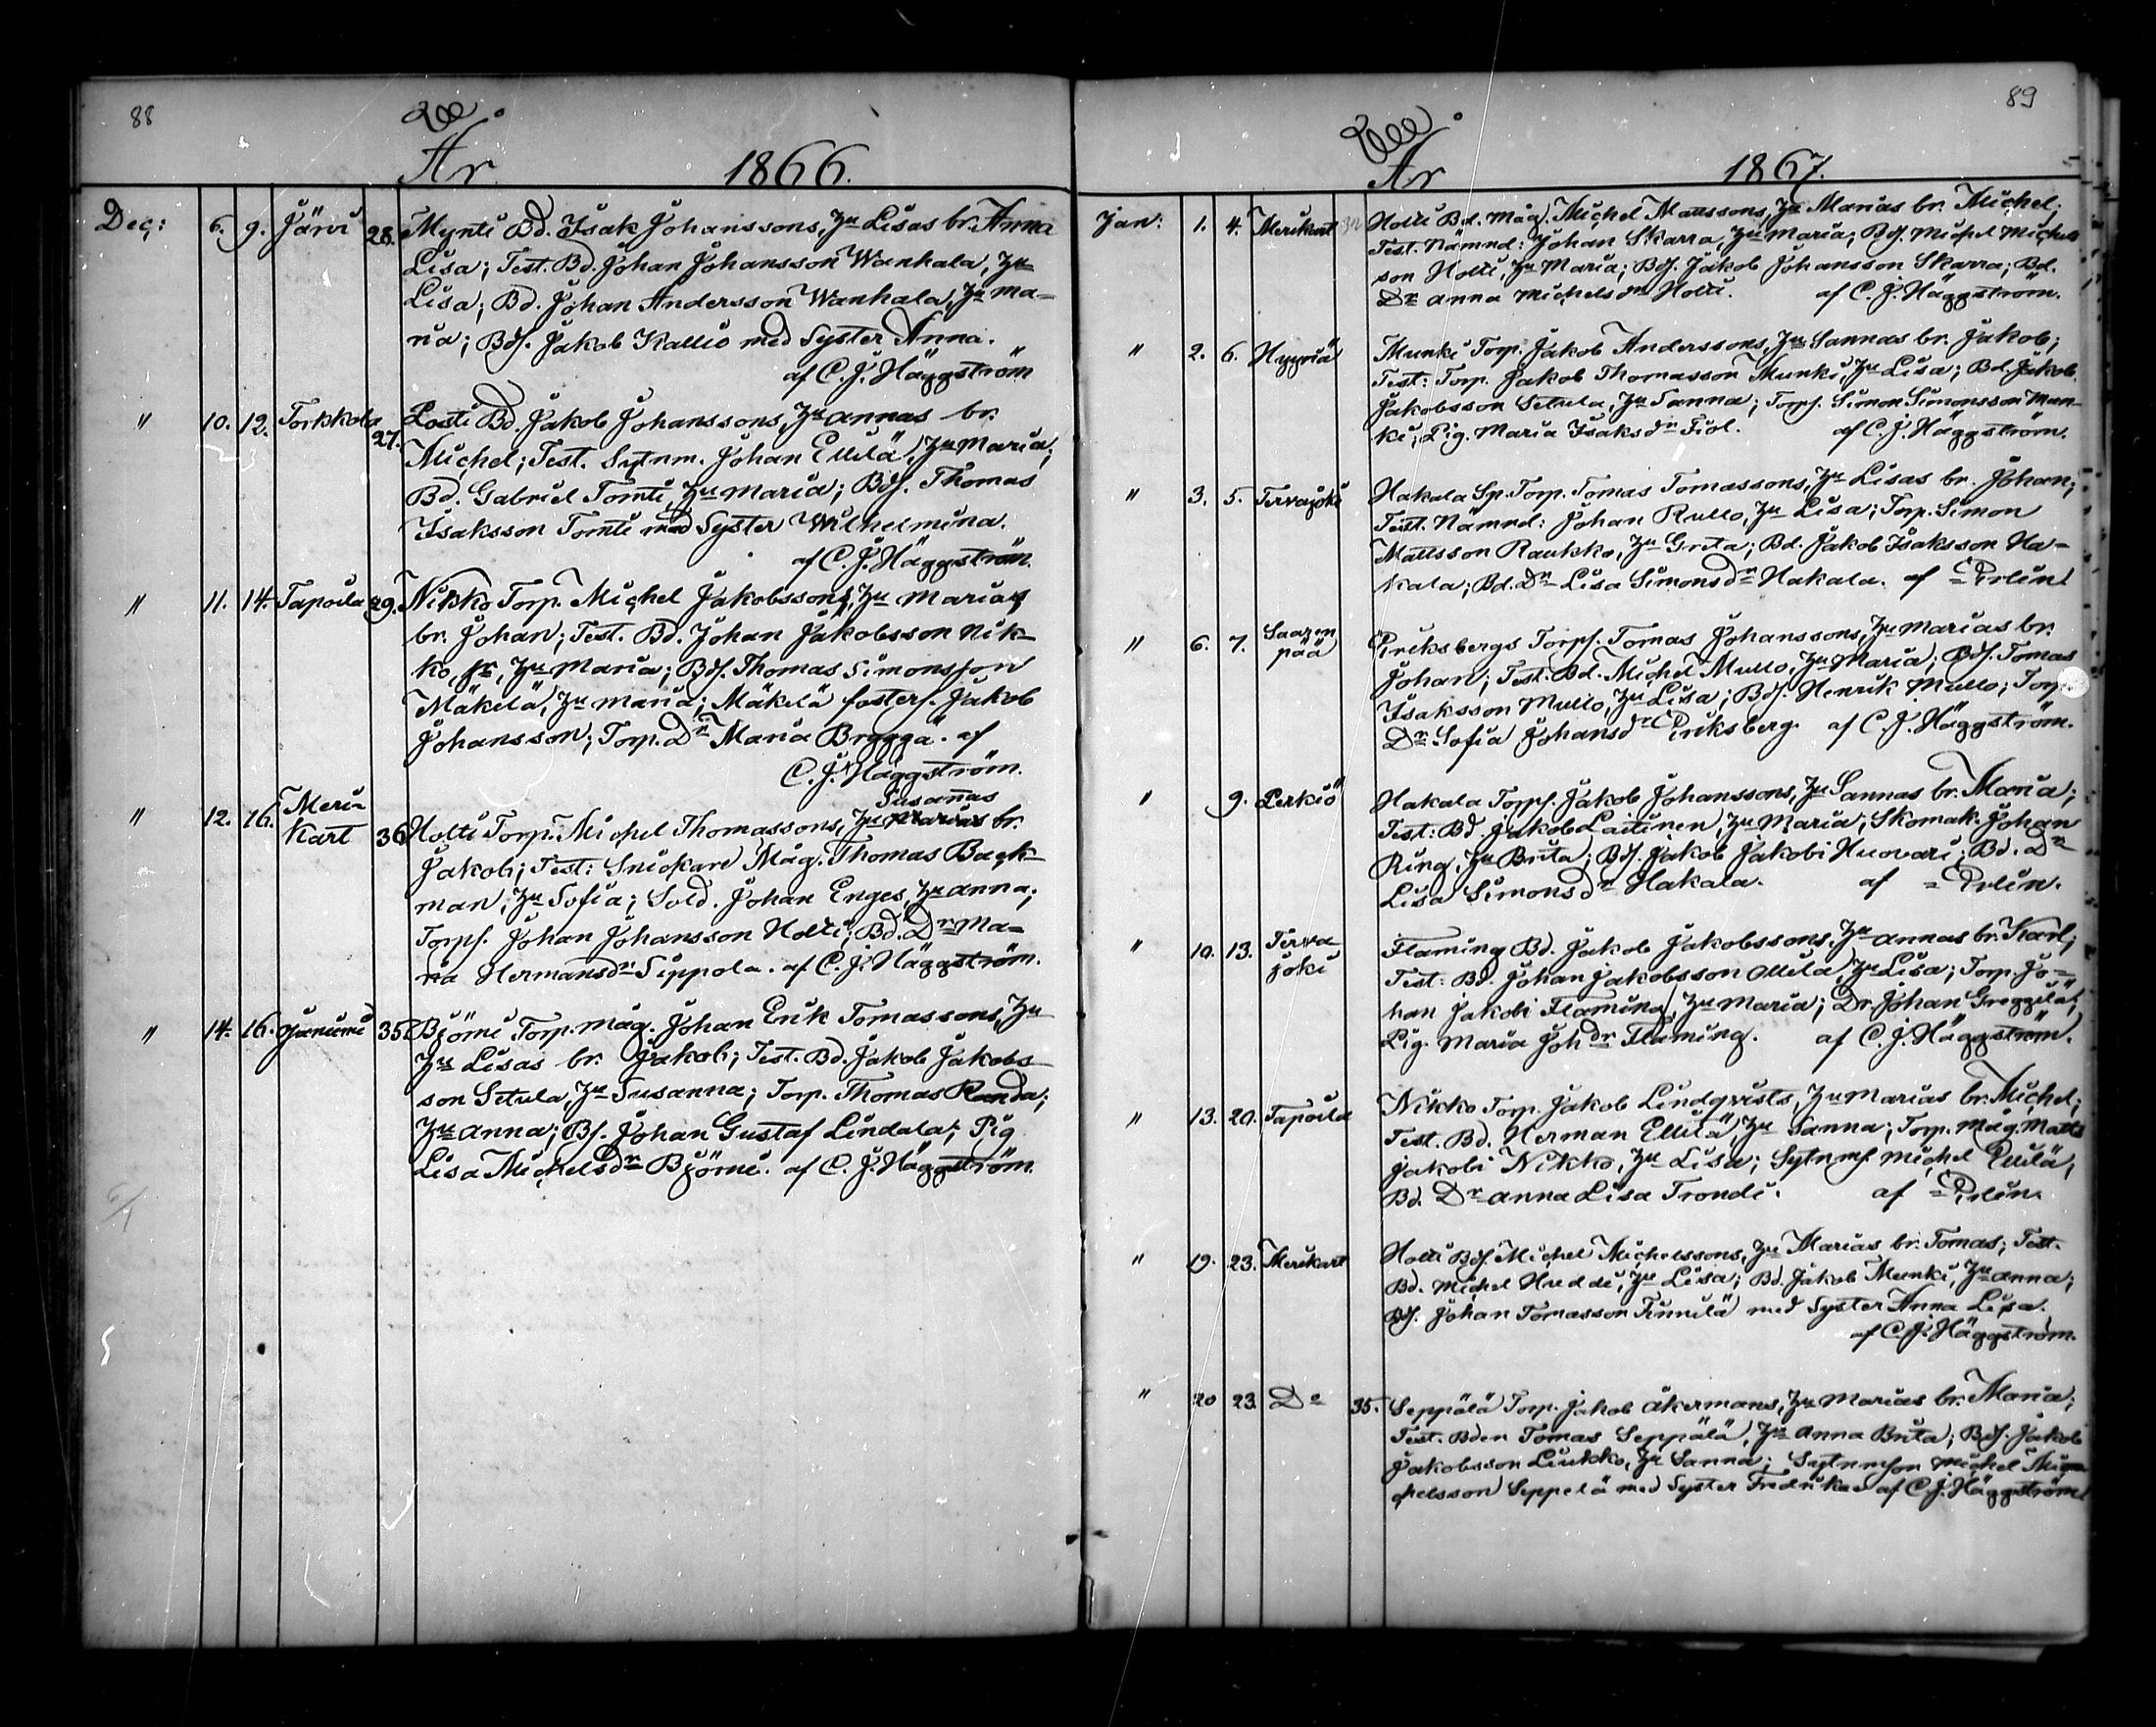 88
År 1866.
Dec: 6. 9. Järvi 28. Mynti Bd. Isak Johanssons, Hu Lisas br. Anna
Lisa; Test. Bd. Johan Johansson Wanhala, Hu
Lisa; Bd. Johan Andersson Wanhala, Hu Ma-
ria; Bds. Jakob Kallio med Syster Anna.
af C. J. Häggström
" 10. 12. Torkkola 27. Losti Bd. Jakob Johanssons, Hu Annas br.
Michel; Test. Sytnm. Johan Ellilä, Hu Maria;
Bd. Gabriel Tomti, Hu Maria; Bds. Thomas
Isaksson Tomti med Syster Wilhelmina.
af C. J. Häggström.
" 11. 14. Tapoila 29. Nikko Torp. Michel Jakobssons, Hu Marias
br. Johan; Test. Bd. Johan Jakobsson Nik-
ko, jr, Hu Maria; Bds. Thomas Simonsson
Mäkelä, Hu Maria; Mäkelä fosters. Jakob
Johansson; Torp. Dr Maria Brygga. af
C. J. Häggström.
" 12. 16. Meri-
Kart 36 Holti Torp. Michel Thomassons, Hu Marias Susannas br.
Jakob; Test: Snickare Måg. Thomas Back-
man, Hu Sofia; Sold. Johan Enges, Hu Anna;
Torps. Johan Johansson Holti; Bd. Dr Ma-
ria Hermansdr Sippola. af C. J. Häggström.
" 14. 16. 35 Björni Torp. måg. Johan Erik Tomassons, Hu
Hu Lisas br. Jakob; Test. Bd. Jakob Jakobs-
son Setula, Hu Susanna; Torp. Thomas Randa;
Hu Anna; Bs. Johan Gustaf Lindala; Pig
Lisa Michelsdr Björni. af C. J. Häggström.
89
År 1867.
Jan: 1. 4. Merikart Holti Bd. Måg. Michel Mattssons, Hu Marias br. Michel;
Test. Nämnd: Johan Skarra, Hu Maria; Bds. Michel Michels
son Holti, Hu Maria; Bds. Jakob Johansson Skarra; Bd.
Dr Anna Michelsdr Holti. af C. J. Häggström.
" 2. 6. Hyyriä Munki Torp. Jakob Anderssons, Hu Sannas br. Jakob;
Test: Torp. Jakob Thomasson Munki, Hu Lisa; Bd. Jakob
Jakobsson Setula, Hu Sanna; Torps. Simon Simonsson Mun-
ki; Pig. Maria Isaksdr Fiol. af C. J. Häggström.
" 3. 5. Tervajoki Hakala Sp. Torp. Tomas Tomassons, Hu Lisas br. Johan;
Test. Nämnd: Johan Rullo, Hu Lisa; Torp. Simon
Mattsson Raukko, Hu Greta; Bd. Jakob Isaksson Ha-
kala; Bd. Dr Lisa Simonsdr Hakala. af
" 6. 7. Saaren
pää Torps. Tomas Johanssons, Hu Marias br.
Johan; Test. Bd. Michel Mullo, Hu Maria; Bds. Tomas
Isaksson Mullo, Hu Lisa; Bds. Henrik Mullo; Torp.
Dr Sofia Johansdr af C. J. Häggström.
" 9. Perkiö Hakala Torps. Jakob Johanssons, Hu Sannas br. Maria;
Test: Bd. Jakob Laitinen, Hu Maria; Skomak. Johan
Ring, Hu Brita; Bds. Jakob Jakobi Huovari; Bd. Dr
Lisa Simonsdr Hakala. af
" 10. 13. Terva-
joki Flaming Bd. Jakob Jakobssons, Hu Annas br. Karl;
Test: Bd. Johan Jakobsson Ollila, Hu Lisa; Torp. Jo-
han Jakobi Flaming, Hu Maria; Dr. Johan Greggilä;
Pig. Maria Johdr Flaming. af C. J. Häggström.
" 13. 20. Tapoila Nikko Torp. Jakob Lindqvists, Hu Marias br. Michel;
Test. Bd. Herman Ellilä, Hu Sanna; Torp. måg Matts
Jakobi Nikko, Hu Lisa; Sytnms. Michel Ellilä;
Bd. Dr Anna Lisa Trondi. af
" 19. 23. Merikart Holti Bds. Michel Michelssons, Hu Marias br. Tomas; Test.
Bd. Michel Huddi, Hu Lisa; Bd. Jakob Munki, Hu Anna;
Bds. Johan Tomasson Finnilä med Syster Anna Lisa.
af C. J. Häggström.
" 20 23. Do 35. Seppälä Torp. Jakob Åkermans, Hu Marias br. Maria;
Test. Bden Tomas Seppälä, Hu Anna Brita; Bds. Jakob
Jakobsson Liukko, Hu Sanna; Sytnmson Michel Mi-
chelsson Seppelä med Syster Fredrika af C. J. Häggström